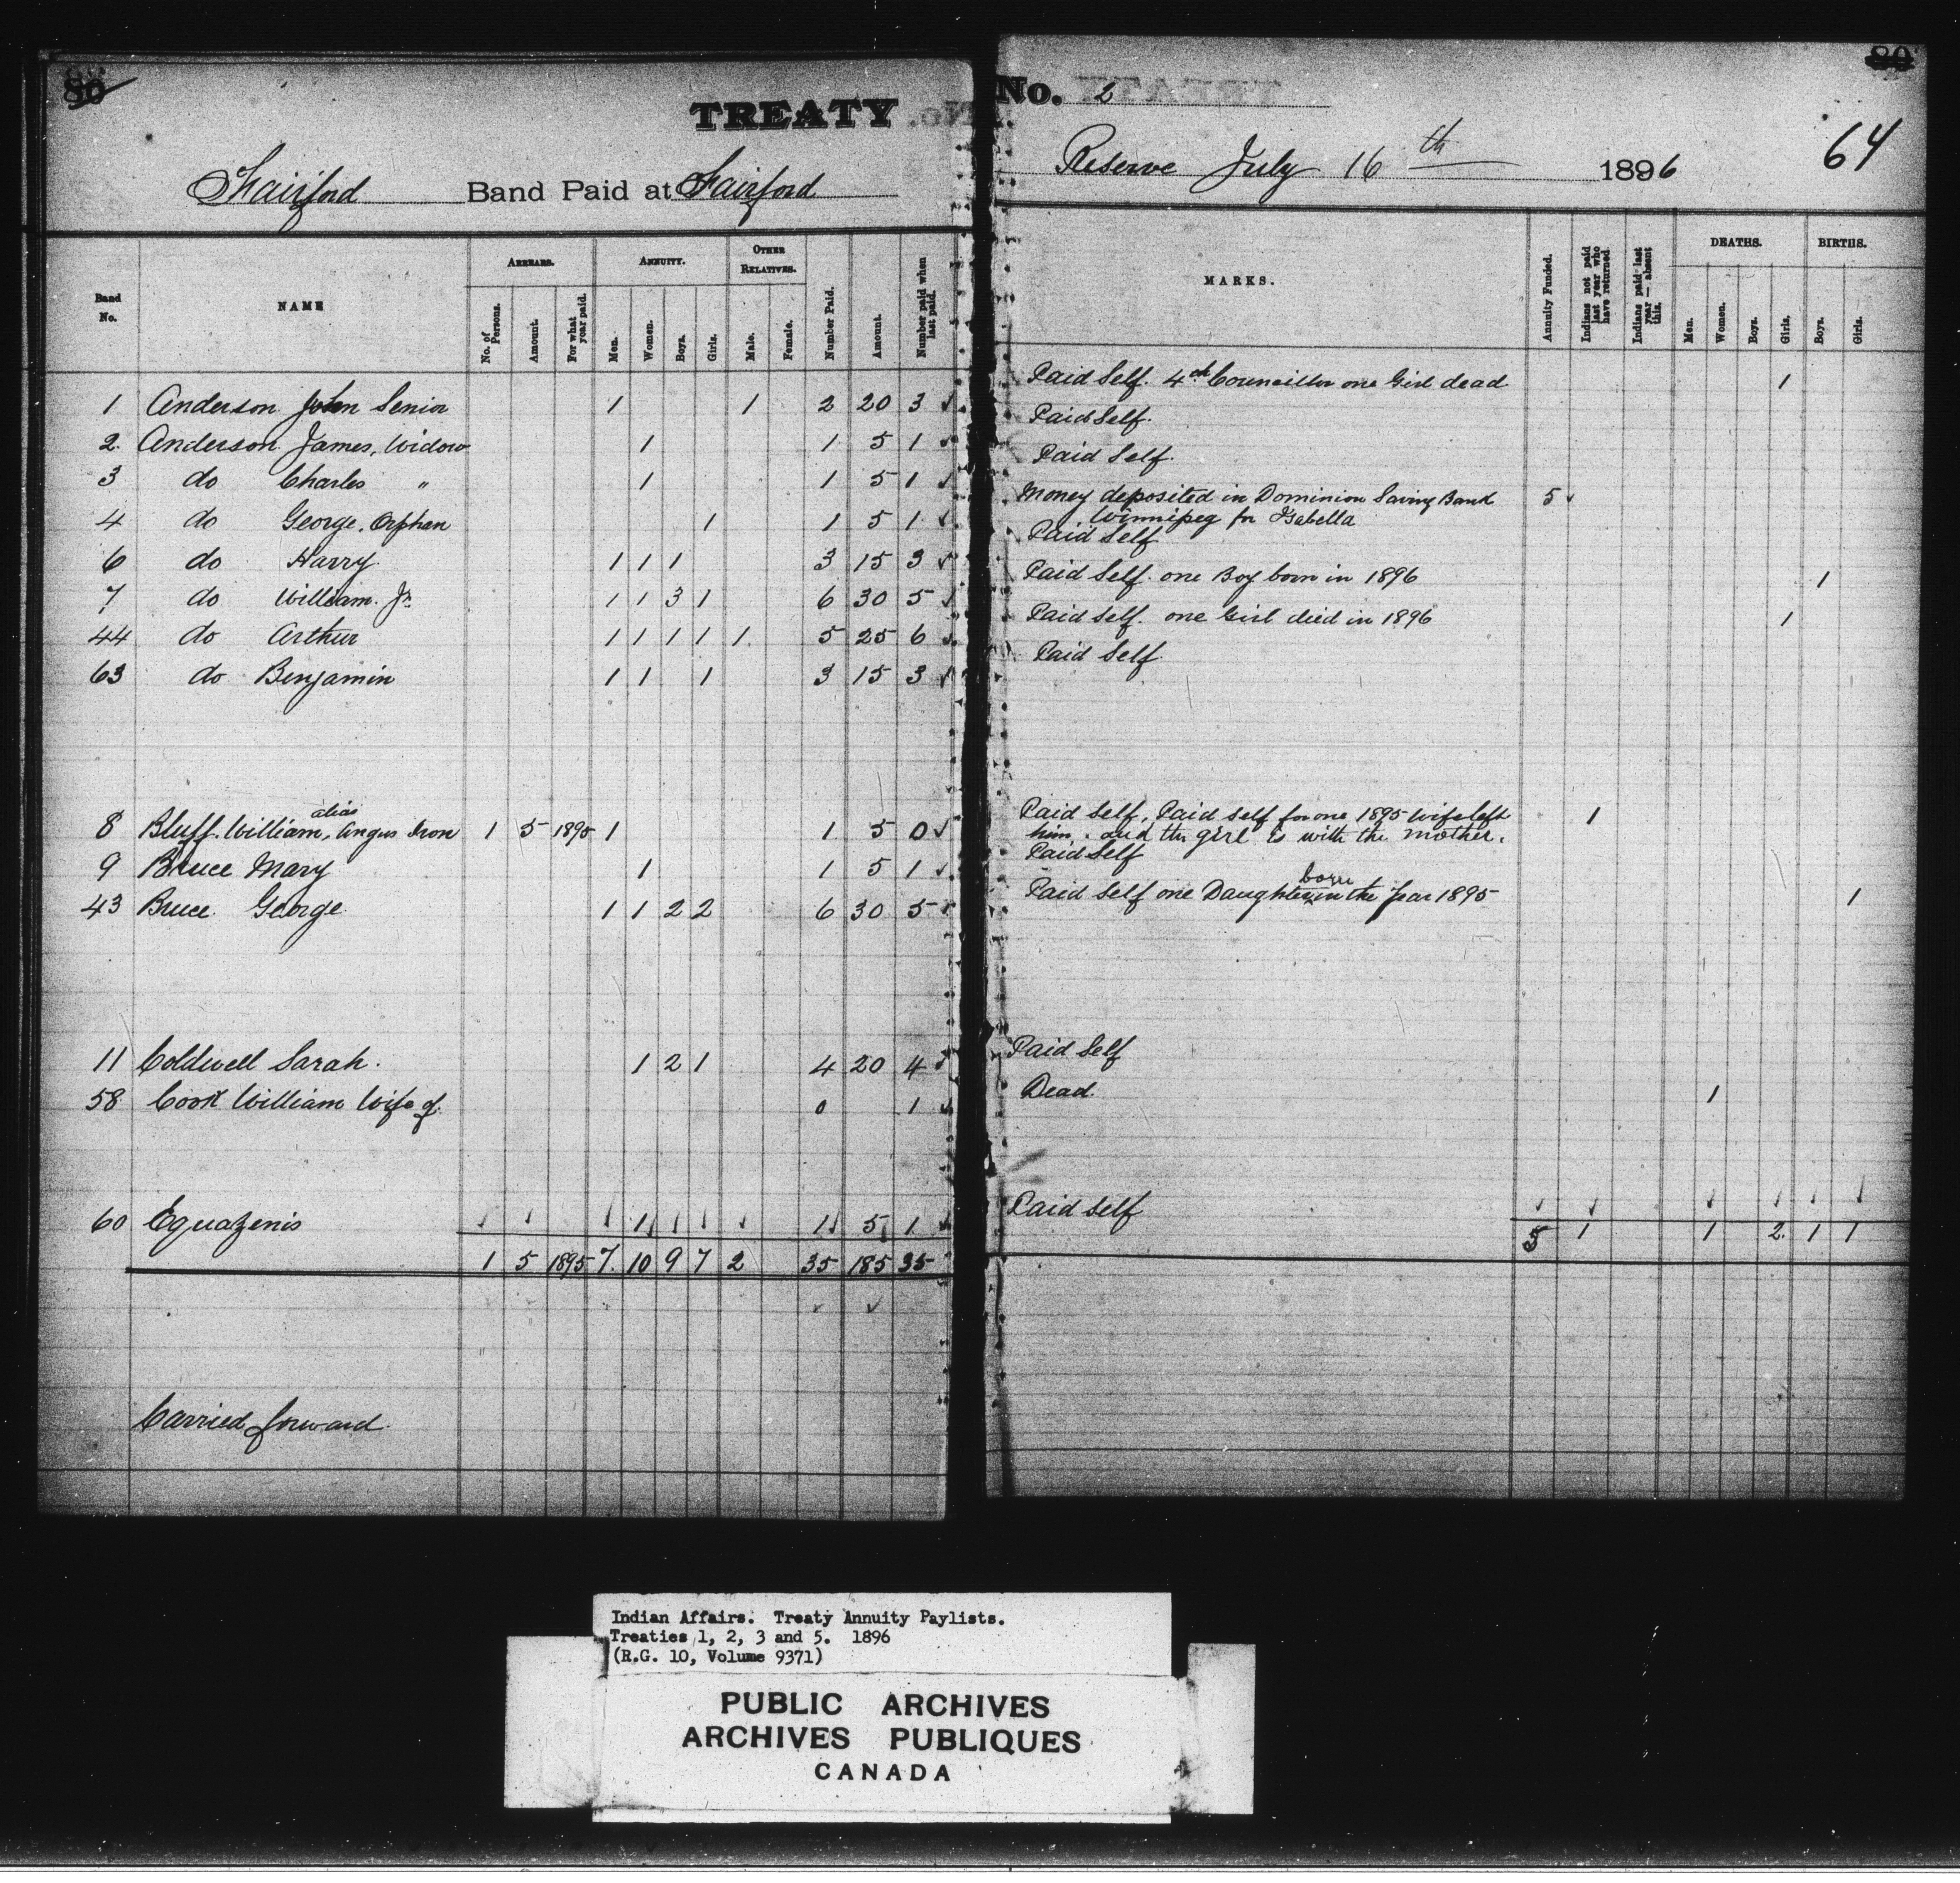 80
TREATY No. 2
80
64
Fairford Band Paid at Fairford Reserve July 16th 1896
Band No. NAME ARREARS. ANNUITY. OTHER RELATIVES. Number Paid. Amount. Number paid when last paid.
No. of Persons. Amount. For what year paid. Men. Women. Boys. Girls. Male. Female.
MARKS. Annuity Funded. Indians not paid last year who have returned. Indians paid last year — absent this. DEATHS. BIRTHS.
Men. Women. Boys. Girls. Boys. Girls.
1 Anderson John Senior 1 1 2 20 3 Paid Self. 4th Councillor one Girl dead 1
2. Anderson James, Widow 1 1 5 1 Paid Self.
3 do Charles " 1 1 5 1 Paid Self.
4 do George. Orphan 1 1 5 1 Money deposited in Dominion Saving Bank 5
Winnipeg for Isabella
6 do Harry 1 1 1 3 15 3 Paid Self
7 do William. Jr. 1 1 3 1 6 30 5 Paid Self. one Boy born in 1896 1
44 do Arthur 1 1 1 1 1 5 25 6 Paid Self. one Girl died in 1896 1
63 do Benjamin 1 1 1 3 15 3 Paid Self
8 Bluff. William, alias Angus Iron 1 5 1895 1 1 5 0 Paid Self, Paid self for one 1895 wife left 1
him. and the girl is with the mother.
9 Bruce Mary 1 1 5 1 Paid Self
43 Bruce George 1 1 2 2 6 30 5 Paid Self one Daughter born in the year 1895 1
11 Coldwell Sarah. 1 2 1 4 20 4 Paid Self
58 Cook William Wife of. 0 1 Dead. 1
60 Equazenis 1 1 5 1 Paid self
1 5 1895 7. 10 9 7 2 35 185 35 5 1 1 2. 1 1
Carried forward.
Indian Affairs. Treaty Annuity Paylists.
Treaties 1, 2, 3 and 5. 1896
(R.G. 10, Volume 9371)
PUBLIC ARCHIVES
ARCHIVES PUBLIQUES
CANADA